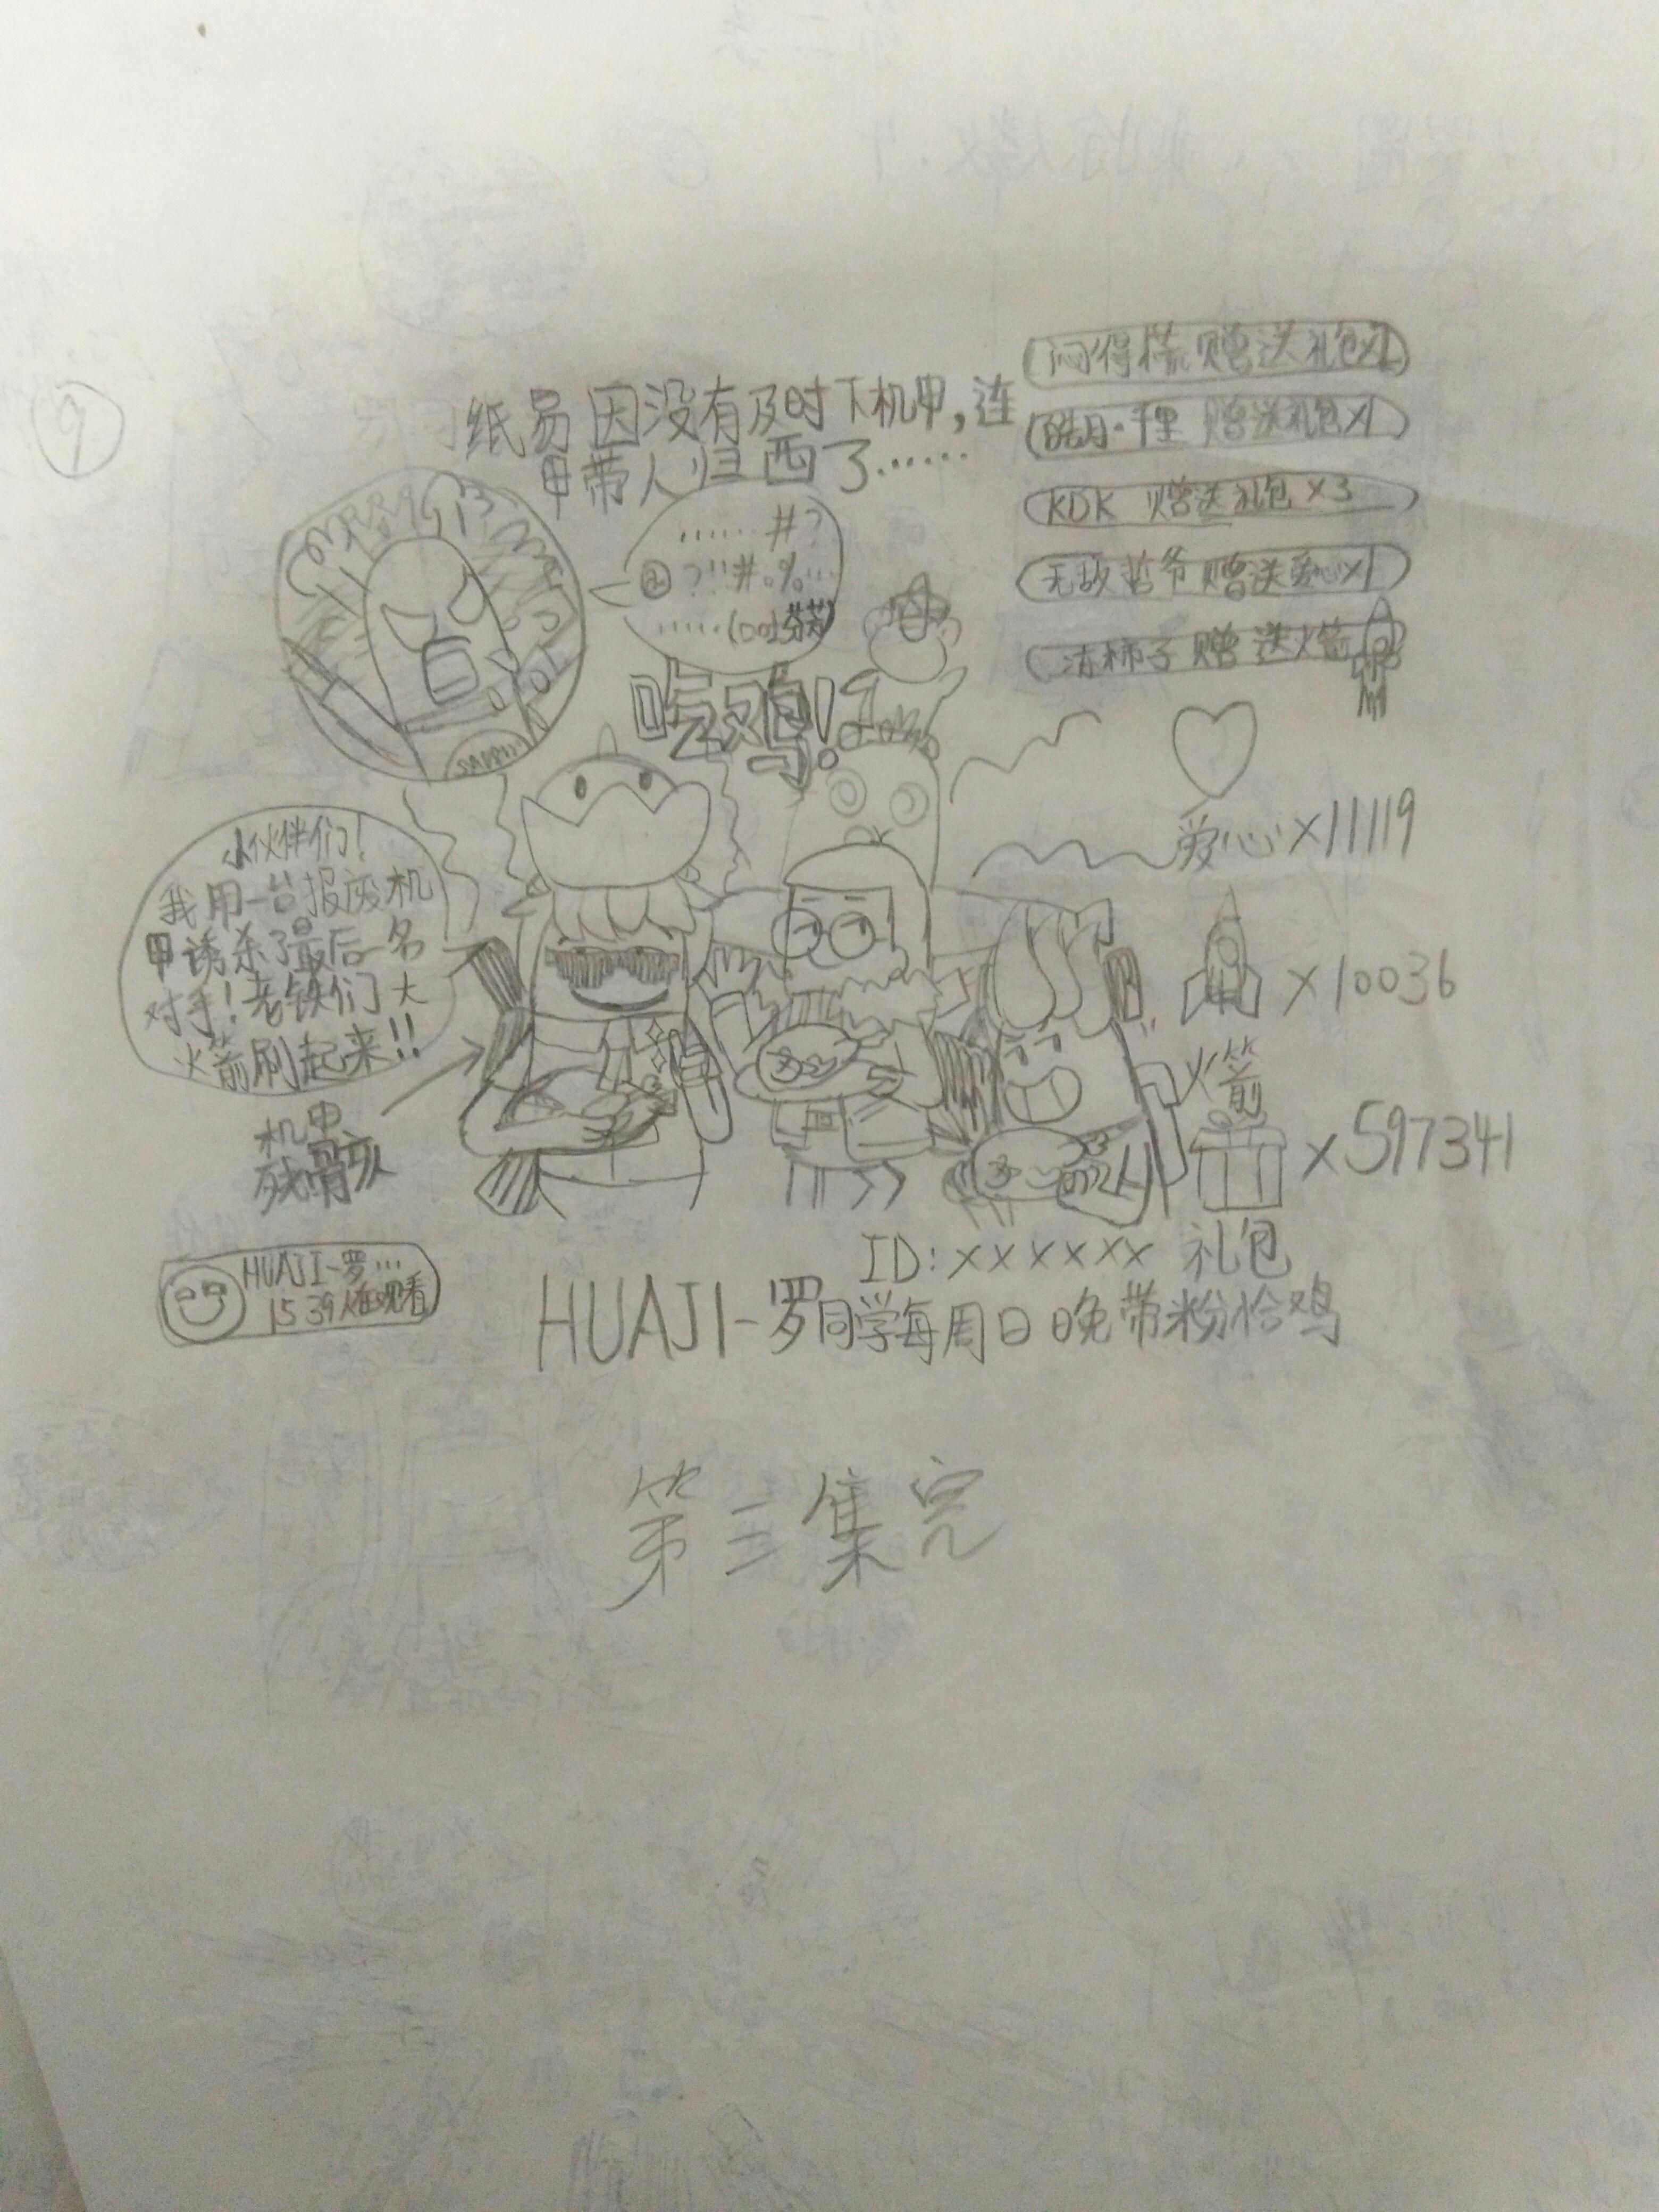 9
纸易因没有及时下机甲,连
甲带人归西了……
闷得慌 赠送礼包x1
皓月·千里 赠送礼包x1
KDK 赠送礼包x3
无敌哲爷赠送爱心x1
冻柿子赠送火箭
……#?
?!!#。%…
吃鸡!
小伙伴们!
我用一台报废机
甲诱杀了最后一名
对手!老铁们大
火箭刷起来!!
机甲
残骸
爱心x11119
x10036
火箭
x597341
礼包
ID:xxxxxx
HUAJI-罗…
1539人在观看
HUAJI-罗同学每周日晚带粉恰鸡
第三集完